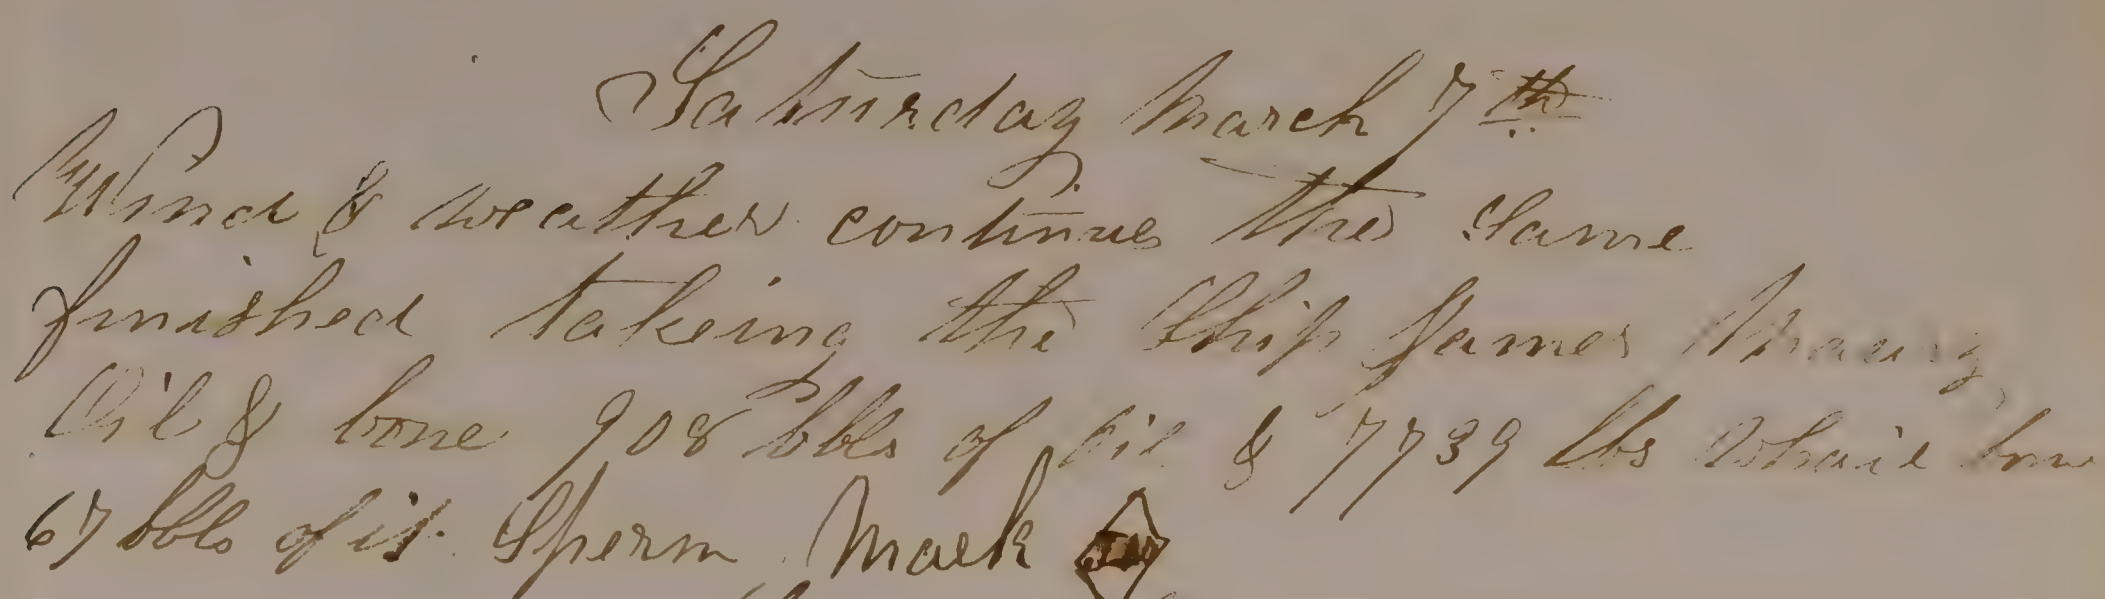 Saturday March 7th
Wind & weather continues the Same
finished takeing the Ship James Maury
Oil & bone 908 bbls of Oil & 7739 lbs Whail bone
67 bbls of it Sperm Mark